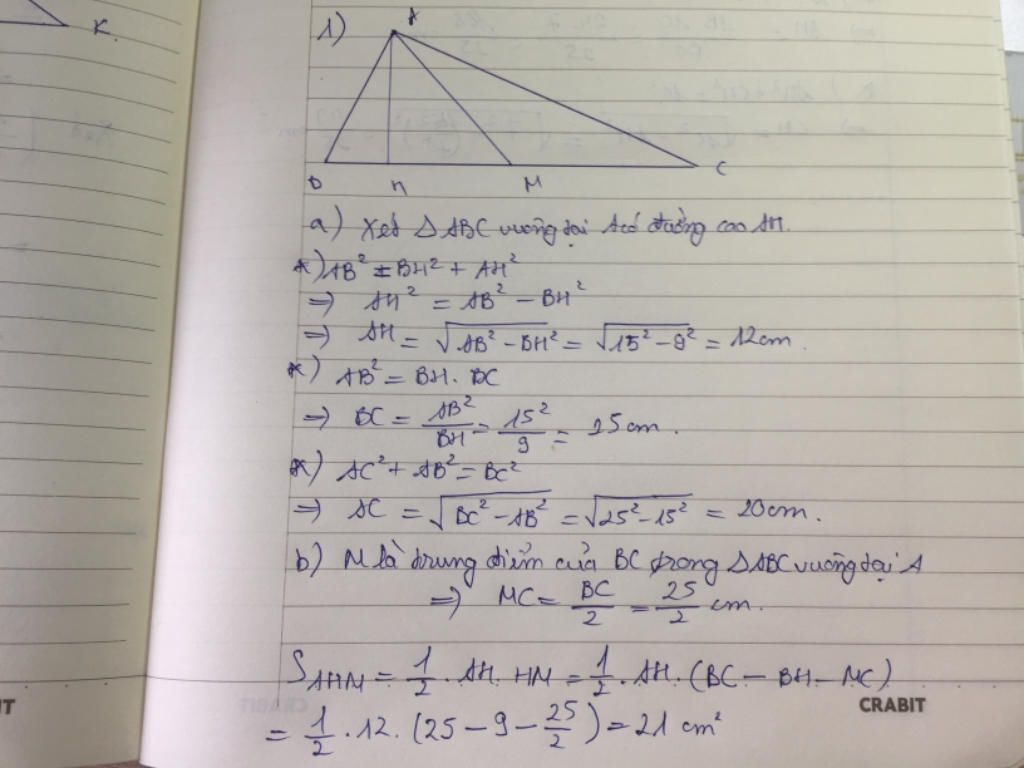 K.
1)
A
B H M C
a) Xét △ABC vuông tại A có đường cao AH.
*) AB² = BH² + AH²
=> AH² = AB² - BH²
=> AH = √(AB² - BH²) = √(15² - 9²) = 12cm.
*) AB² = BH. BC
=> BC = AB²/BH = 15²/9 = 25cm.
*) AC² + AB² = BC²
=> AC = √(BC² - AB²) = √(25² - 15²) = 20cm.
b) M là trung điểm của BC trong △ABC vuông tại A
=> MC = BC/2 = 25/2 cm.
S_AHM = 1/2 . AH. HM = 1/2 . AH. (BC - BH - MC)
CRABIT
= 1/2 . 12. (25 - 9 - 25/2) = 21 cm²